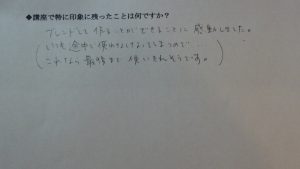 ◆講座で特に印象に残ったことは何ですか？
ブレンドして作ることができることに感動しました。
いつも途中で使わなくなってしまうので…
これなら最後まで使いきれそうです。